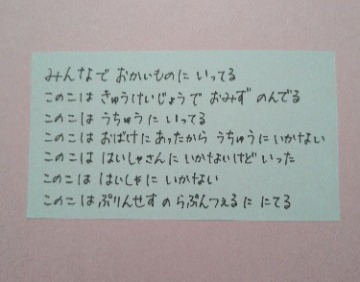 みんなで おかいものに いってる
このこは きゅうけいじょうで おみず のんでる
このこは うちゅうに いってる
このこは おばけに あったから うちゅうに いかない
このこは はいしゃさんに いかないけど いった
このこは はいしゃに いかない
このこは ぷりんせすの らぷんつぇるに にてる